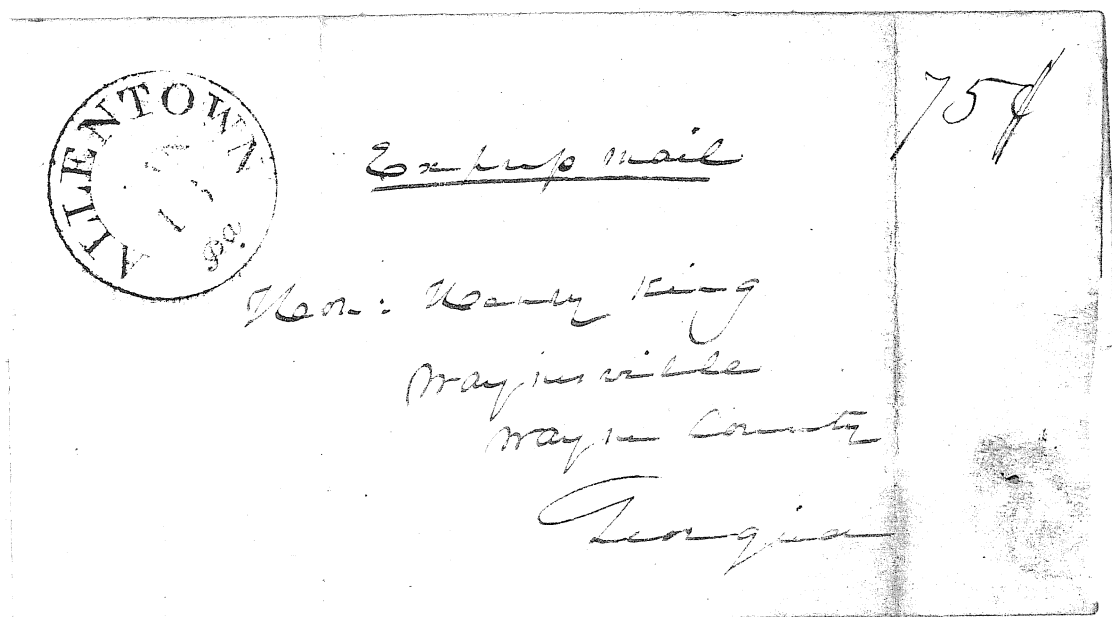 ALLENTOWN
Pa.
75¢
Express Mail
Hon: Henry King
Waynesville
Wayne County
Georgia